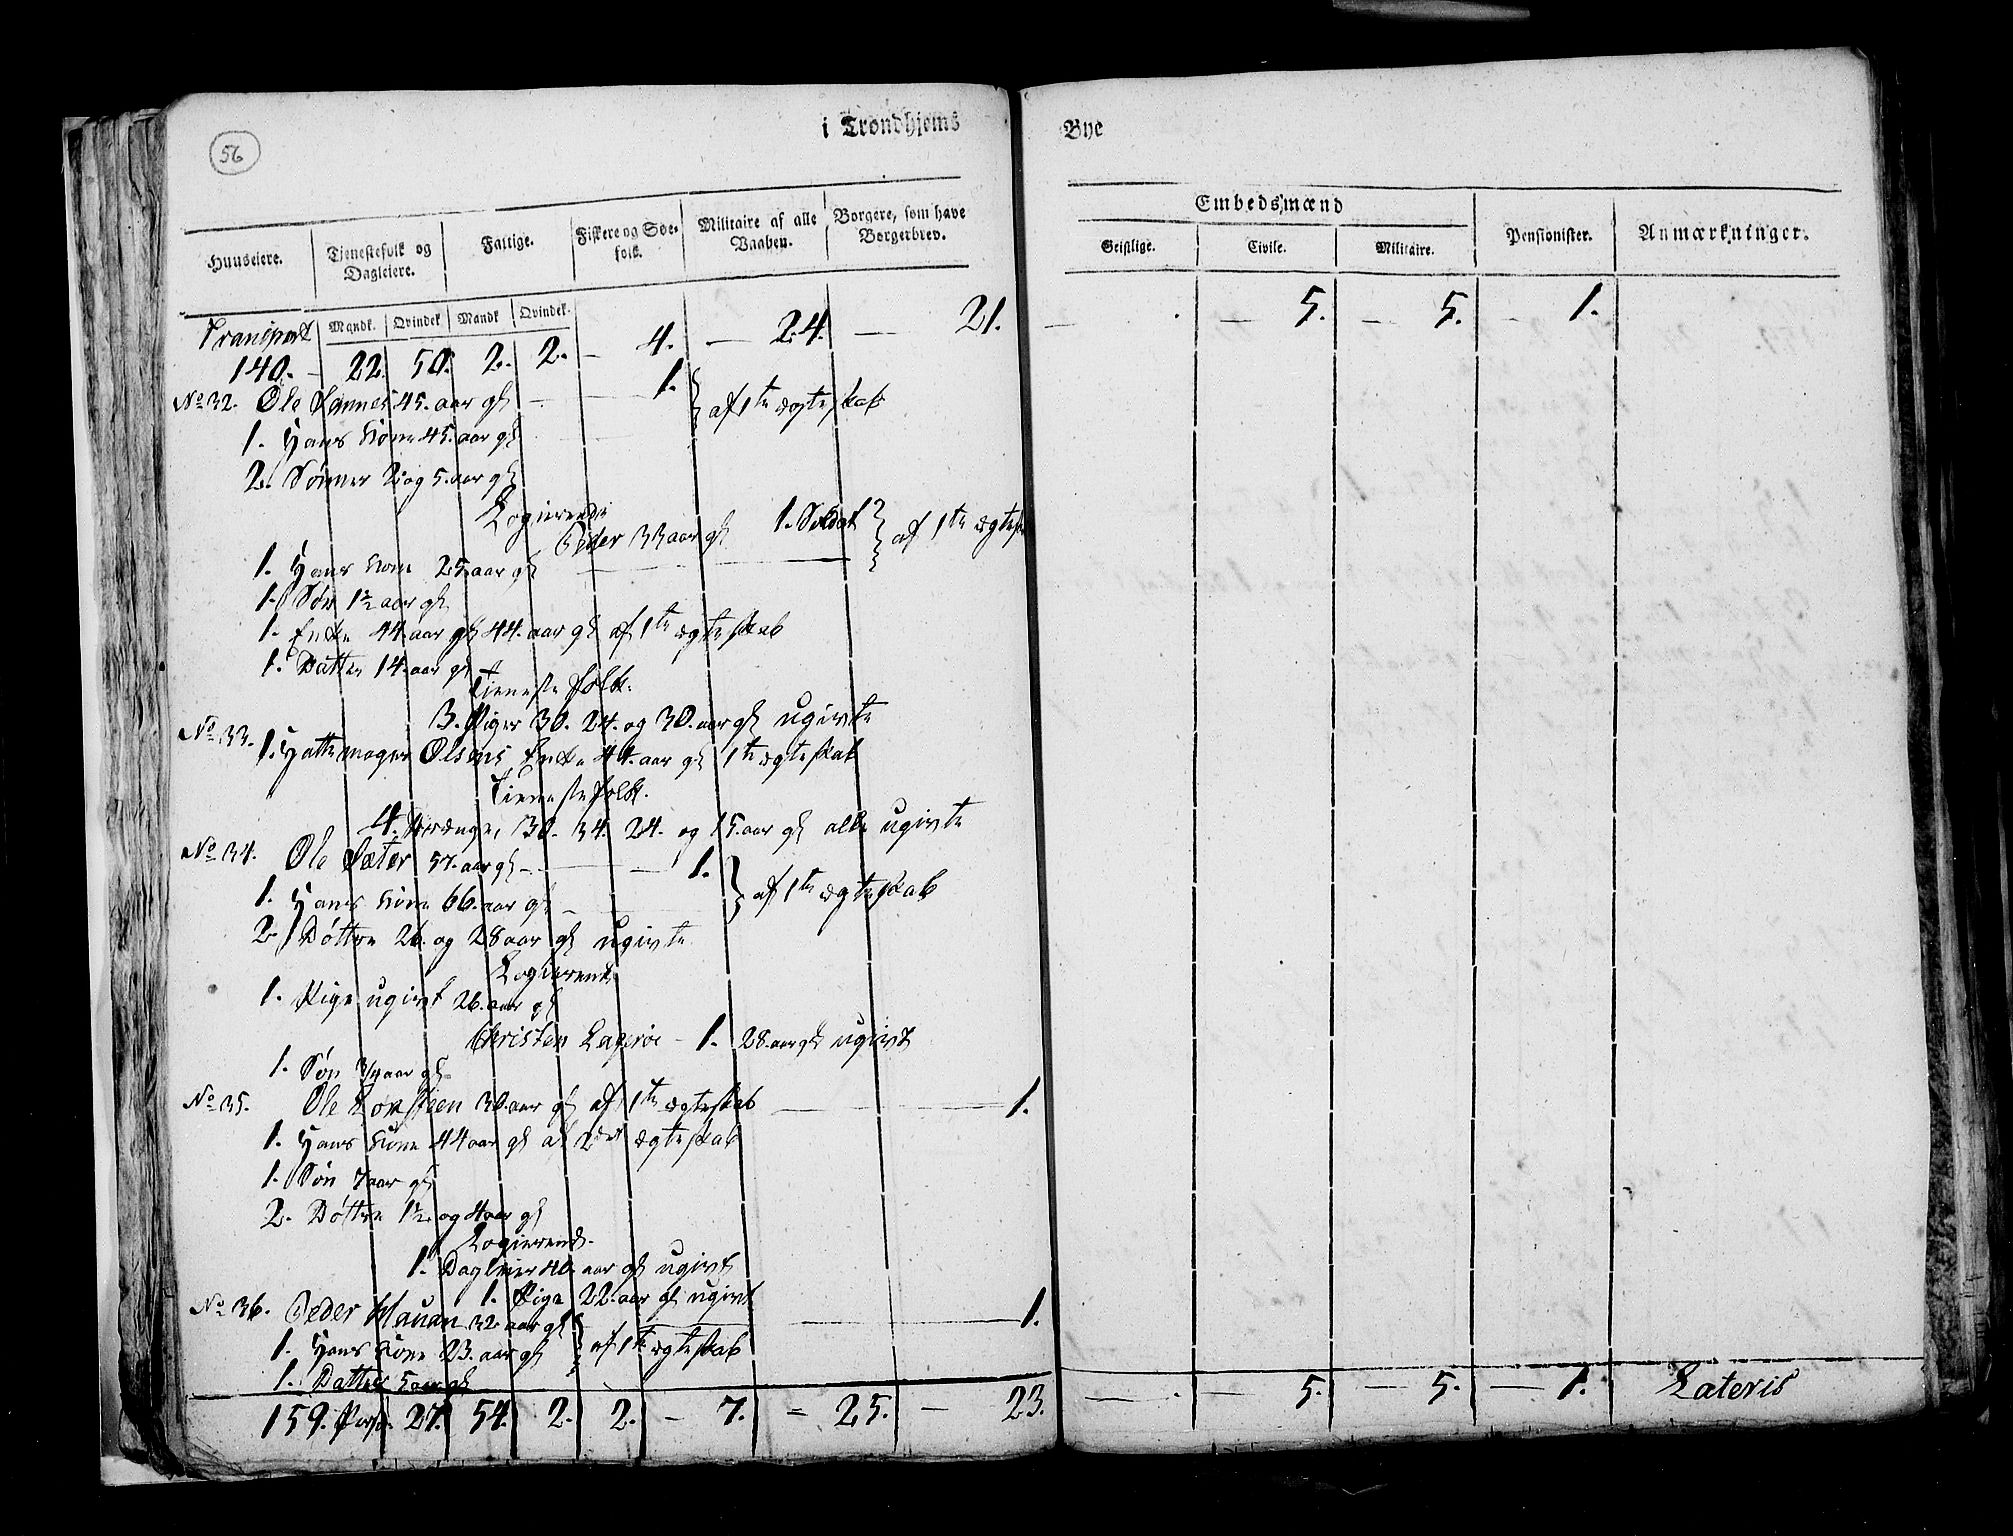 56
i Trondhjems
Bye
Huuseiere.
Tjenestefolk og Dagleiere.
Fattige.
Fiskere og Søefolk.
Militaire af alle Vaaben.
Borgere, som have Borgerbrev.
Embedsmænd
Geistlige.
Civile.
Militaire.
Pensionister.
Anmærkninger.
Mandk. Qvindek Mandk Qvindek.
Transport
140. - 22. 50. 2. 2. - 4. - 24. - 21. - . - 5. - 5. - 1.
No 32. Ole 45. aar gl - 1. } af 1te ægteskab
1. Hans Kone 45. aar gl
2. Sønner 2. og 5. aar gl
Logierende
Peder 33 aar gl 1. Soldat } af 1te
1. Hans Kone 25. aar gl
1. Søn 1½ aar gl
1. Enke 44. aar gl 44. aar gl af 1te ægteskab
1. Datter 14. aar gl
Tieneste folk.
3. Piger 30. 24. og 30. aar gl ugivte
No 33. 1. Hattemager Olsens Enke 44. aar gl 1te ægteskab
Tieneste folk.
4. Drænge, 30. 34. 24. og 15. aar gl alle ugivte
No 34. Ole Sæter 57. aar gl - 1. } af 1te ægteskab
1. Hans Kone 66. aar gl -
2. Døttre 26. og 28 aar gl ugivte
Logierende
1. Pige ugivt 26. aar gl
Christen - 1. 28. aar gl ugivt
1. Søn 3/4 aar gl
No 35. Ole 30. aar gl af 1te ægteskab - 1.
1. Hans Kone 44 aar gl af 2det ægteskab
1. Søn 7 aar gl
2. Døttre 1½ og 4 aar gl
Logierend.
1. Dagleier 40. aar gl ugivt
1. Pige 22. aar gl ugivt
No 36. Peder 32 aar gl - 1.
1. Hans Kone 23. aar gl } af 1te ægteskab
1. Datter 5 aar gl
159. Pers. 27. 54. 2. 2. - 7. - 25. - 23. - . - 5. - 5. - 1. Lateris